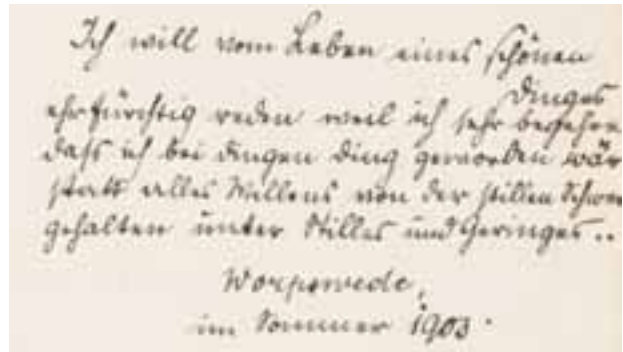 Ich will vom Leben eines schönen
Dinges
ehrfürchtig reden weil ich sehr begehre
dass ich bei Dingen Ding geworden wär
statt alles Willens von der stillen
gehalten unter Stilles und Geringes..
Worpswede,
im Sommer 1903.